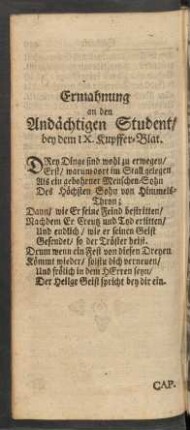 Ermahnung
an den
Andächtigen Student/
bey dem IX. Kupffer-Blat.
DRey Dinge sind wohl zu erwegen/
Erst/ warum dort im Stall gelegen
Als ein gebohrner Menschen-Sohn
Des Höchsten Sohn von Himmels-
Thron;
Dann/ wie Er seine Feind bestritten/
Nachdem Er Creutz und Tod erlitten/
Und endlich/ wie er seinen Geist
Gesendet/ so der Tröster heist.
Drum wenn ein Fest von diesen Dreyen
Kömmt wieder/ solstu dich verneuen/
Und frölich in dem HErren seyn/
Der Heilge Geist spricht bey dir ein.
CAP.